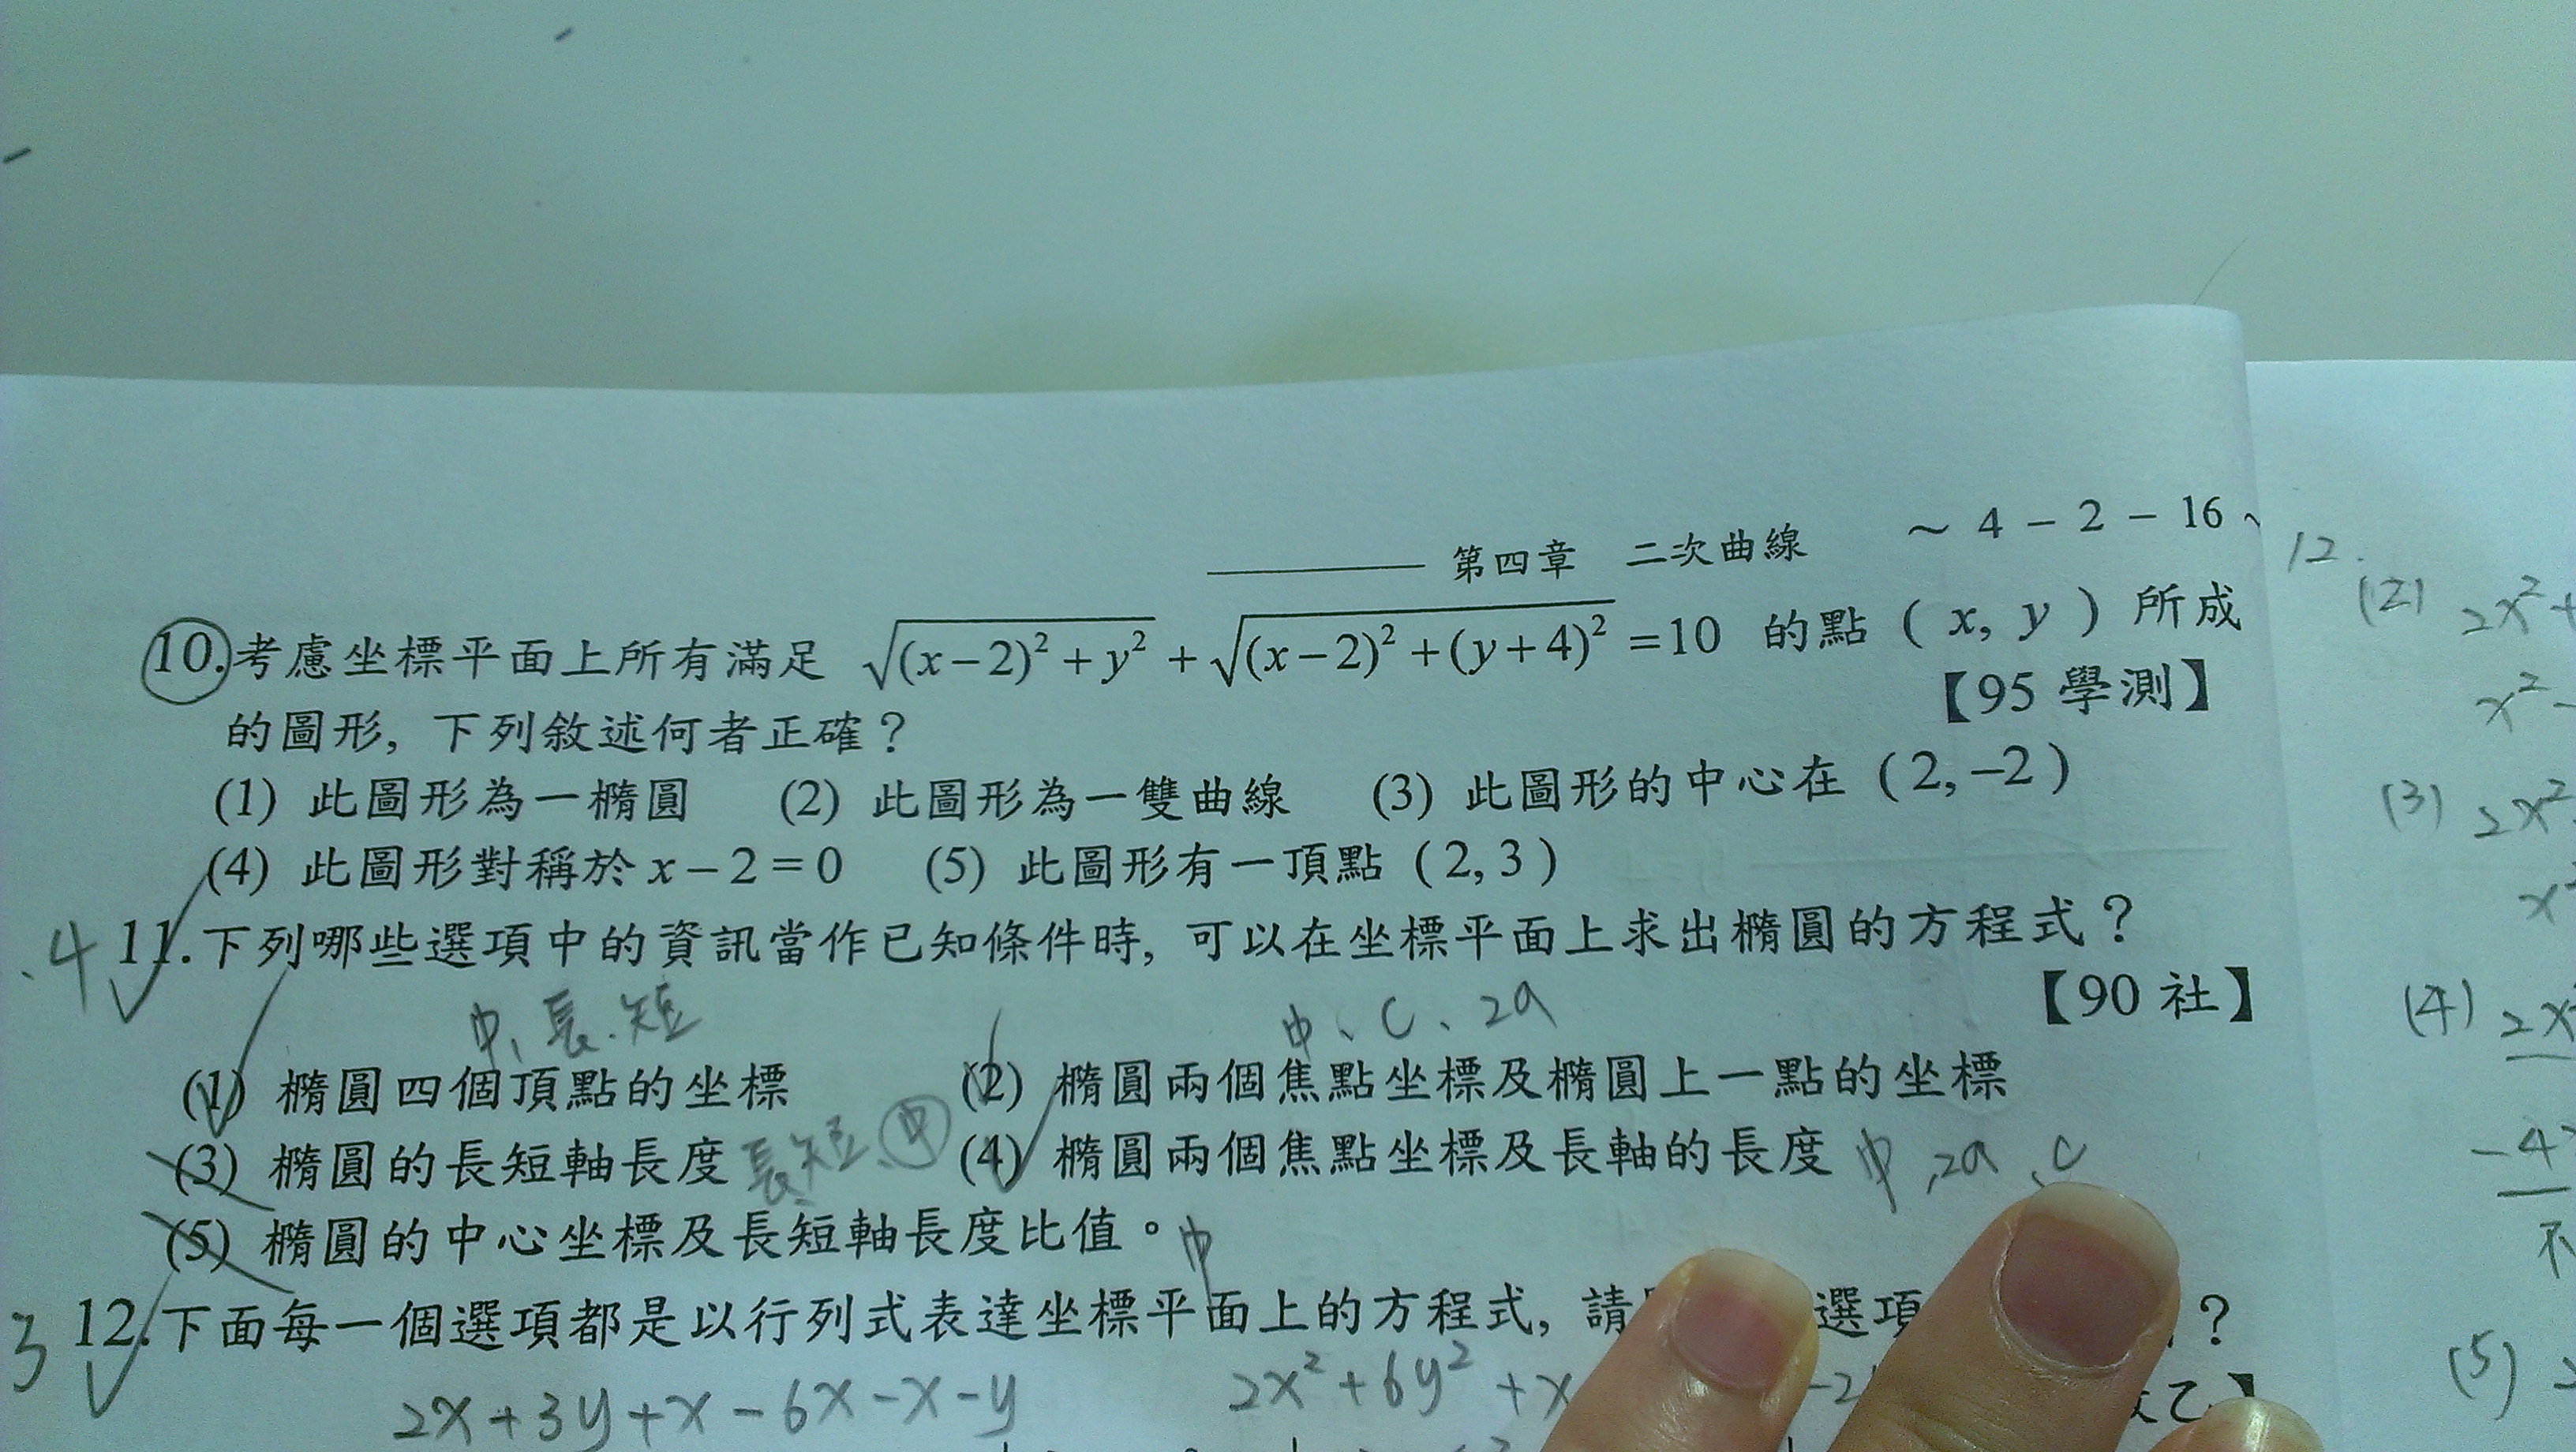 第四章 二次曲線 ～ 4 － 2 － 16
10.考慮坐標平面上所有滿足 √((x−2)²+y²) + √((x−2)²+(y+4)²) =10 的點 ( x, y ) 所成
的圖形, 下列敘述何者正確？ 【95 學測】
(1) 此圖形為一橢圓 (2) 此圖形為一雙曲線 (3) 此圖形的中心在 ( 2, −2 )
(4) 此圖形對稱於 x − 2 = 0 (5) 此圖形有一頂點 ( 2, 3 )
.4 11.下列哪些選項中的資訊當作已知條件時, 可以在坐標平面上求出橢圓的方程式？
【90 社】
中、長、短 中、c、2a
(1) 橢圓四個頂點的坐標 (2) 橢圓兩個焦點坐標及橢圓上一點的坐標
(3) 橢圓的長短軸長度 長、短、中 (4) 橢圓兩個焦點坐標及長軸的長度 中,2a、c
(5) 橢圓的中心坐標及長短軸長度比值。中
3 12.下面每一個選項都是以行列式表達坐標平面上的方程式, 請 選項 ？
2x+3y+x−6x−x−y 2x²+6y²+x −2 乙】
12.
(2) 2x²+
x²−
(3) 2x²
x²
(4) 2x
−4
不
(5) 2